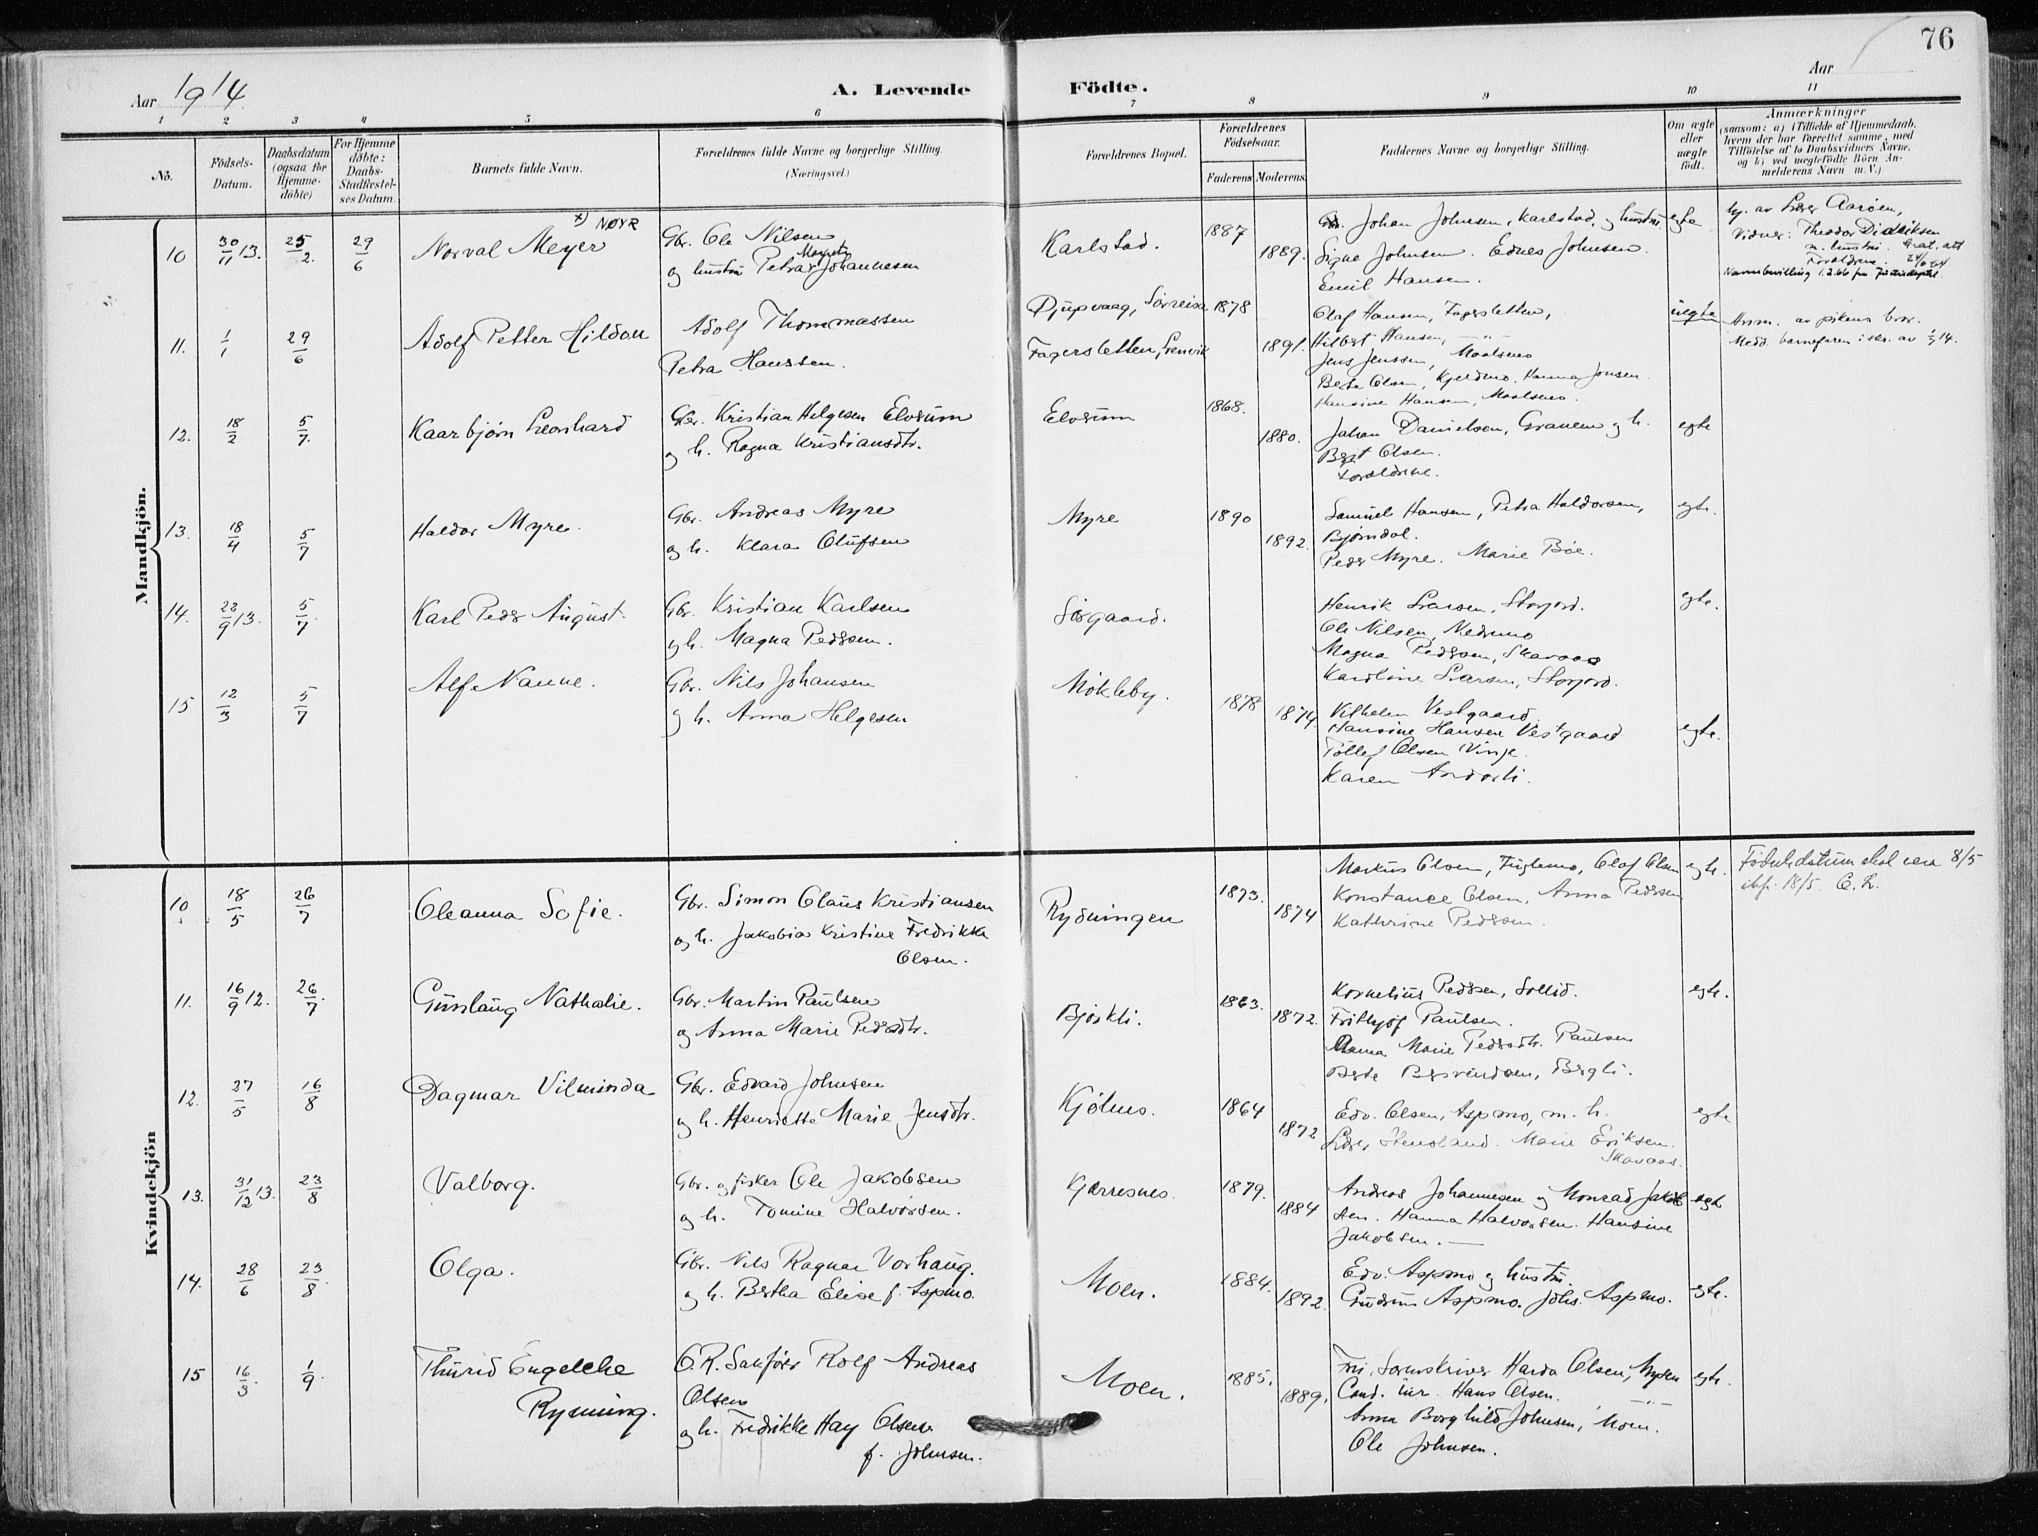 76
Aar 1914
A. Levende Födte.
Aar
1 2 3 4 5 6 7 8 9 10 11
No.
Födsels-Datum.
Daabsdatum (ogsaa for Hjemme-döbte)
For Hjemme döbte: Daabs-Stadfæstel-ses Datum.
Barnets fulde Navn.
Forældrenes fulde Navne og borgerlige Stilling. (Næringsvei.)
Forældrenes Bopæl.
Forældrenes Födselsaar.
Faderens Moderens
Faddernes Navne og borgerlige Stilling.
Om ægte eller uægte født.
Anmærkninger
(saasom: a) i Tilfælde af Hjemmedaab, hvem der har forrettet samme, med Tilföielse af to Daabsvidners Navne. og b) ved uegtefödte Börn An-melderens Navn m. V.)
Mandkjön.
10 30/11 13. 25/2. 29/6 Norval Meyer x) NØYR
Gbr. Ole Nilsen
og hustru Petra Margrete Johannesen
Karlstad. 1887 1889.
Johan Johnsen, Karlstad, og hustru
Signe Johnsen. Ednes Johnsen.
Emil Hansen.
egte
hj. av Lærer Aarøen,
Vidner: Theodor Didriksen
m. hustru. Grat. att
Foreldrene. 24/6-64
Navnebevilling 1.2.66 fra Justisdept.
11. 1/1 29/6 Adolf Petter Hildon
Adolf Thommassen
Petra Hanssen.
Djupvaag, Sørreisa 1878
Fagersletten, Lenvik 1891.
Olaf Hansen, Fagersletten,
Hilbert Hansen, —"—
Jens Jenssen, Moalsnes
Berte Olsen, Kjeldmo. Hanna Jonsen.
Hansine Hansen, Maalsnes.
uegte
Anm. av pikens bror.
Medd. barnefaren i skr. av
12. 18/2 5/7. Kaarbjørn Leonhard
Gbr. Kristian Helgesen Elvrum
og h. Ragna Kristiansdtr.
Elvrum 1868. 1880.
Johan Danielsen, Granmo og h.
Berit Olsen.
Foreldrene.
egte
13. 18/4 5/7 Haldor Myre.
Gbr. Andreas Myre
og h. Klara Olufsen
Myre 1890 1892.
Samuel Hansen, Petra Haldorsen,
Bjørndal.
Peder Myre. Marie Bøe.
egte.
14. 22/9 13. 5/7 Karl Peder August.
Gbr. Kristian Karlsen
og h. Magna Pedersen.
Sørgaard.
Henrik Larsen, Storjord.
Ole Nilsen, Nedremo
Magna Pedersen, Skavaas
Karoline Larsen, Storjord.
egte.
15 12/3 5/7 Alf Nanne.
Gbr. Nils Johansen
og h. Anna Helgesen
Møkleby. 1878 1874.
Vilhelm Vestgaard
Hansine Hansen Vestgaard
Tollef Olsen Vinje.
Karen Anderli.
egte.
Kvindekjön
10 18/5 26/7 Oleanna Sofie.
Gbr. Simon Claus Kristiansen
og h. Jakobia Kristine Fredrikke
Olsen.
Rydningen 1873. 1874
Markus Olsen, Fuglemo, Olaf Olsen
Konstance Olsen, Anna Pedersen
Kathrine Pedersen.
egte.
Fødselsdatum skal være 8/5
ikke 18/5.
11. 16/9 12. 26/7. Gunlaug Nathalie.
Gbr. Martin Paulsen
og Anna Marie Pedersdtr.
Bjørkli. 1863. 1872.
Kornelius Pedersen, Sollid.
Frithjof Paulsen.
Anna Marie Pedersdtr. Paulsen
Berte Bersvendsen, Bergli.
egte.
12. 27/5 16/8 Dagmar Vilminda
Gbr. Edvard Johnsen
og h. Henriette Marie Jensdtr.
Kjølnes. 1864 1872
Edv. Olsen, Aspmo, m. h.
Lærer Stensland. Marie Eriksen.
Skavaas.
egte
13. 31/12 13. 23/8 Valborg.
Gbr. og fisker Ole Jakobsen
og h. Tomine Halvorsen.
Kjerresnes. 1879. 1884
Andreas Johannesen og Monrad Jakob
sen. Hanna Halvorsen. Hansine
Jakobsen. —
egte
14. 28/6 23/8. Olga.
Gbr. Nils Ragnar Vorhaug.
og h. Bertha Elise f. Aspmo.
Moen. 1884. 1892.
Edv. Aspmo og hustru.
Gudrun Aspmo. Johs. Aspmo.
egte.
15 16/3. 1/9 Thurid Engelche
Rynning.
O.R. Sakfører Rolf Andreas
Olsen
og h. Fredrikke Hay Olsen
f. Johnsen.
Moen. 1885. 1889.
Fru Sorenskriver Harda Olsen, Mysen
Cand. iur. Hans Olsen. —"—
Anna Borghild Johnsen, Moen.
Ole Johnsen.
egte.